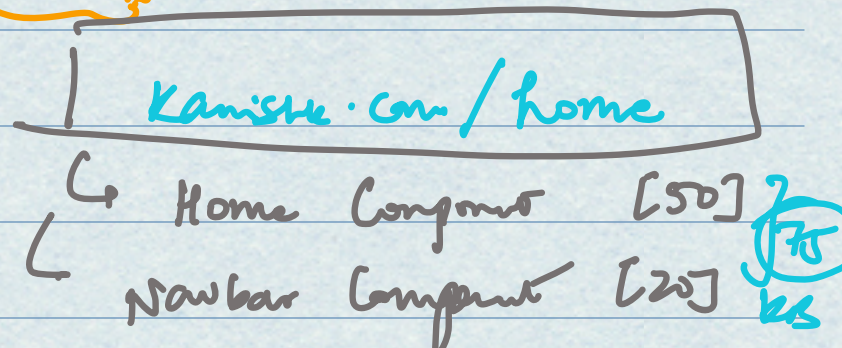 Kanishk.com/home
↳ Home Component [50]
Navbar Component [20]
75
KB